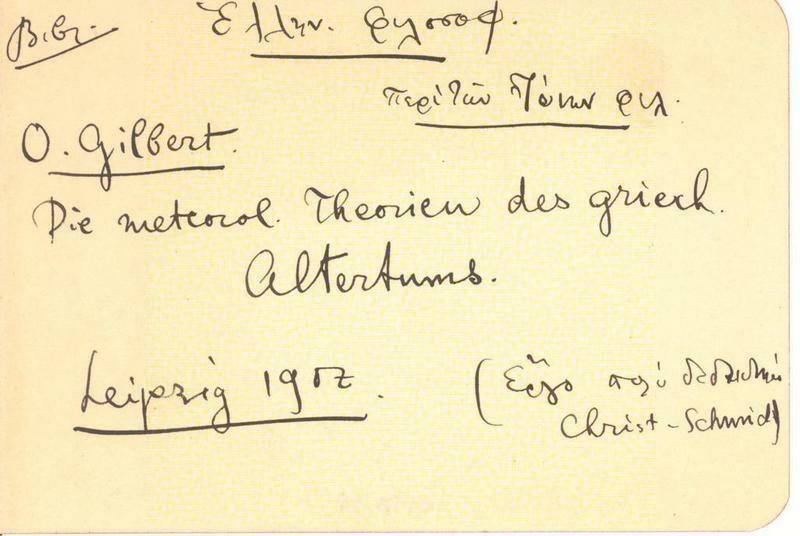 Βιβλ. Ἑλλην. φιλοσοφ.
περὶ τῶν Ἰώνων φιλ.
O. Gilbert.
Die meteorol. Theorien des griech.
Altertums.
Leipzig 1907.
(Ἔργο πολύ
Christ-Schmid)